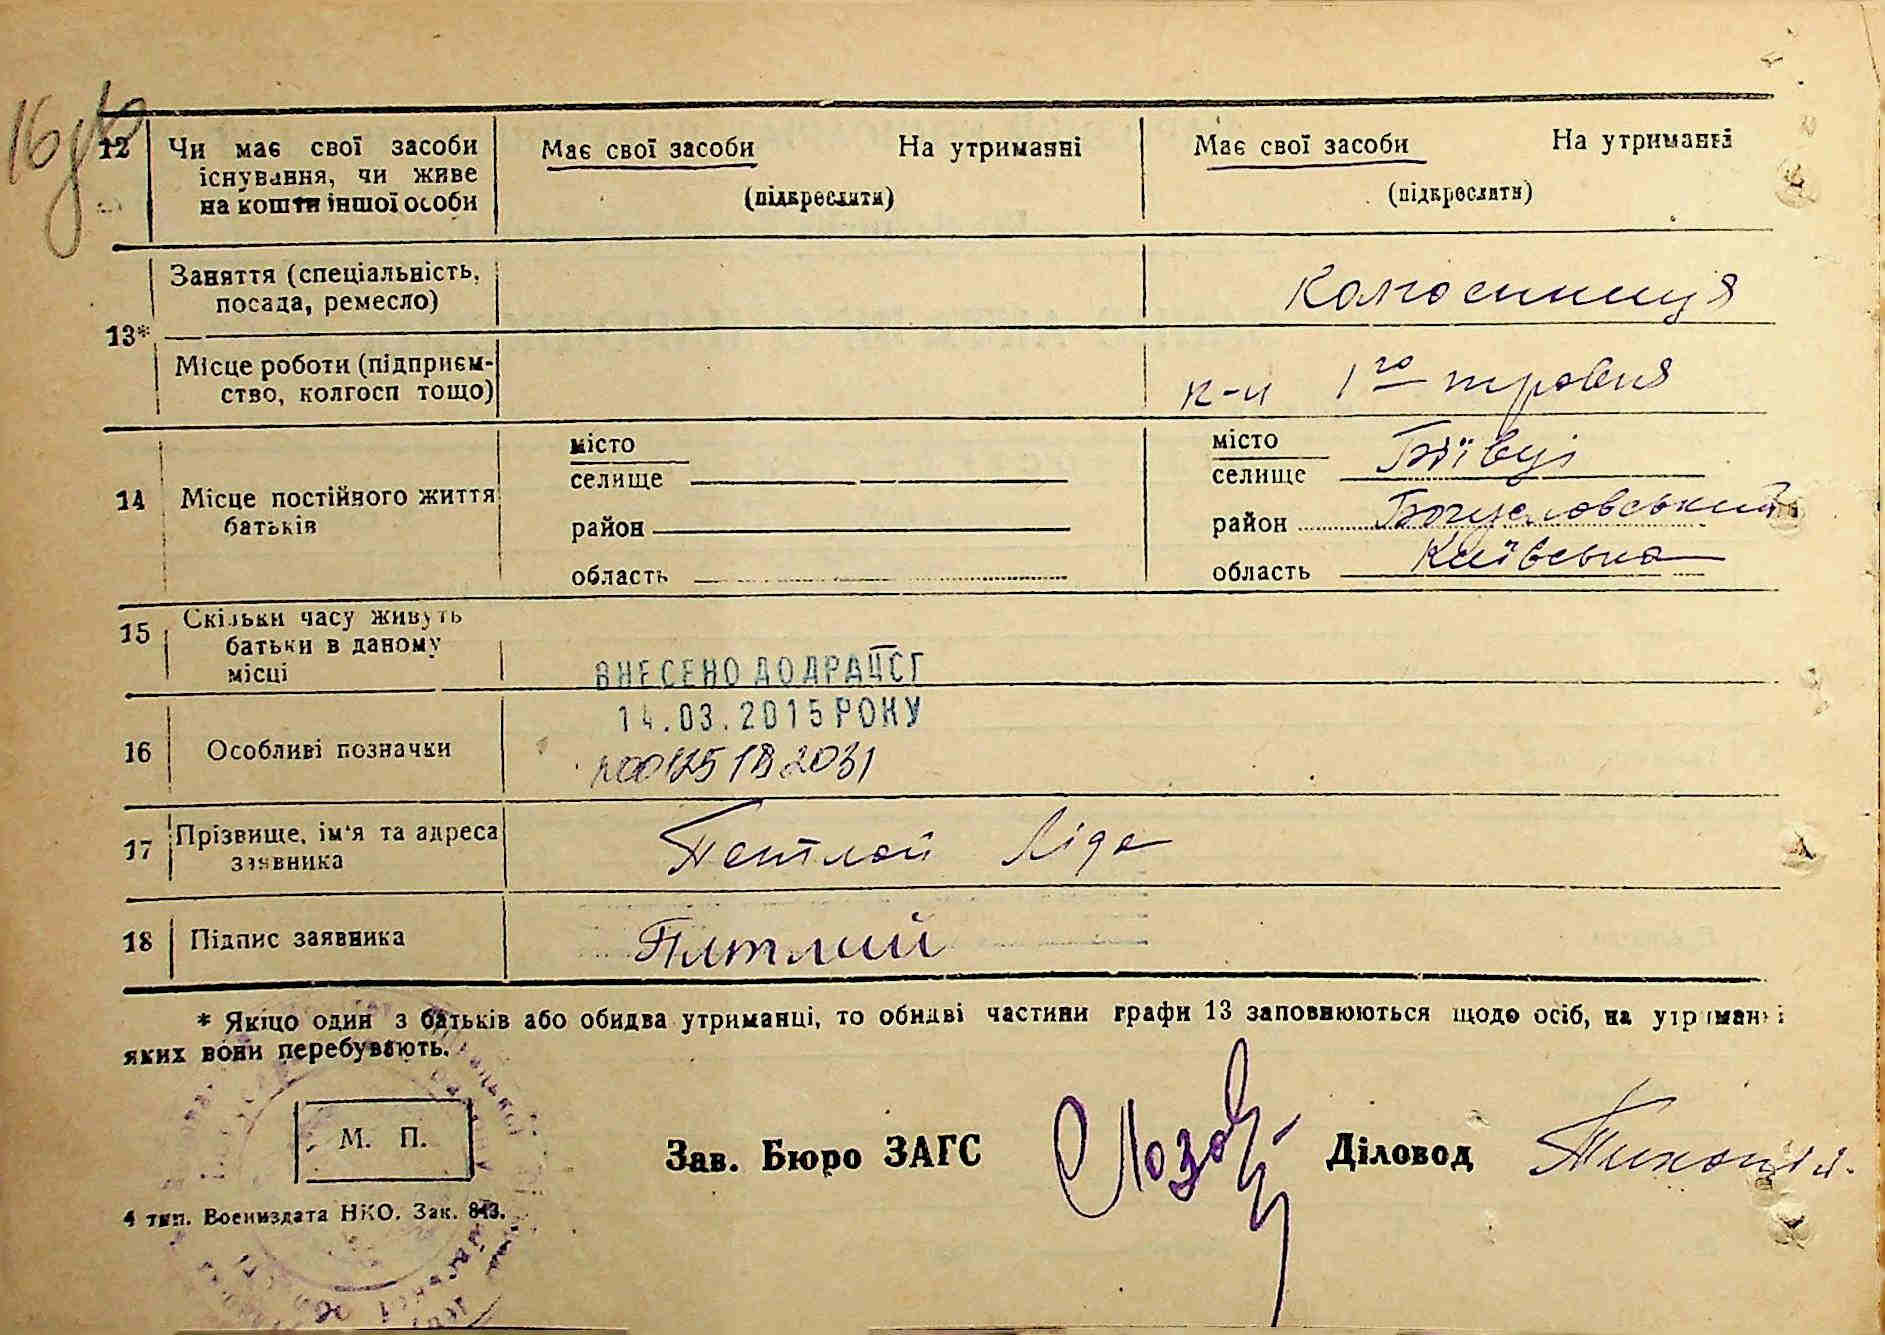 16
12 Чи має свої засоби існування, чи живе на кошти іншої особи
Має свої засоби На утриманні
(підкреслити)
Має свої засоби На утриманні
(підкреслити)
13* Заняття (спеціальність, посада, ремесло)
Колгоспниця
Місце роботи (підприємство, колгосп тощо)
к-п 1го травня
14 Місце постійного життя батьків
місто
селище
район
область
місто Біївці
селище
район Богуславський
область Київська
15 Скільки часу живуть батьки в даному місці
ВНЕСЕНО ДО ДРАЦСГ
14.03.2015 РОКУ
16 Особливі позначки
17 Прізвище, ім'я та адреса заявника
Ліда
18 Підпис заявника
* Якщо один з батьків або обидва утриманці, то обидві частини графи 13 заповнюються щодо осіб, на утриманні
яких вони перебувають.
М. П.
Зав. Бюро ЗАГС
Діловод
4 тип. Воениздата НКО. Зак. 843.